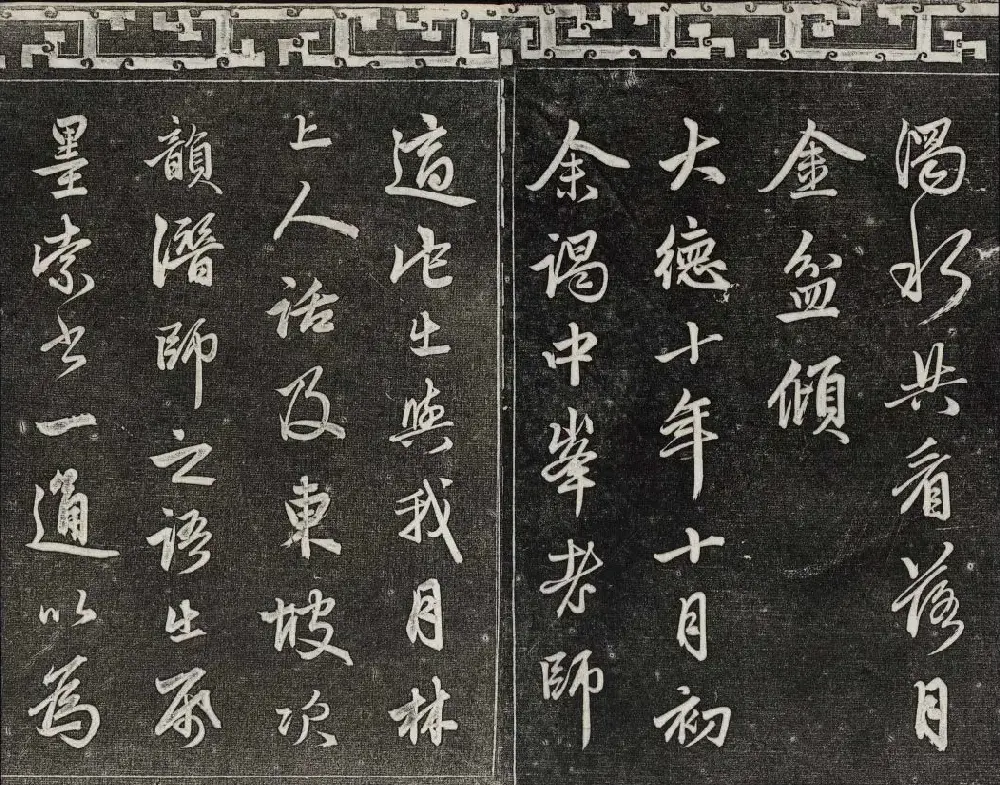 濁水共看落月
金盆傾
大德十年十月初
余謁中峯老師
適他出與我月林
上人話及東坡次
韻潛師之語出帋
墨索書一通以為